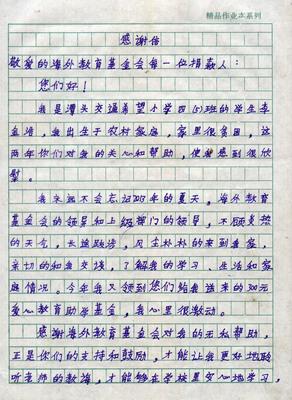 精品作业本系列
感谢信
敬爱的海外教育基金会每一位捐款人:
您们好!
我是潭头交通希望小学四(5)班的学生李
血培,我出生于农村家庭,家里很贫困,这
两年你们对我的关心和帮助,使我感到很欣
慰。
我永远不会忘记07年的夏天,海外教育
基金会的领导和上级部门的领导,不顾炎热
的天气,长途跋涉,风尘朴朴的来到我家,
亲切的和我交谈,了解我的学习、生活和家
庭情况。今年我又领到您们给我送来的300元
爱心教育助学基金,我心里很激动。
感谢海外教育基金会对我的无私帮助,
正是你们的支持和鼓励,才能让我更好地聆
听老师的教诲,才能够在学校里安心地学习,